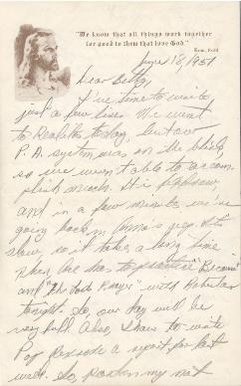 "We know that all things work together
for good to them that love God."
Rom. 8:28
June 18, 1951
Dear Betty,
I've time to write
just a few lines. We went
to today, but our
P. A. system was on the blink,
so we weren't able to accom-
plish much. It is
and in a few minutes we're
going back in jeep. It's
slow, so it takes a long time
Then she has to practice
and "The Lord's Prayer" with
tonight. So, our day will be
very full. Also, I have to write
Pop a report for last
week. So, pardon my not